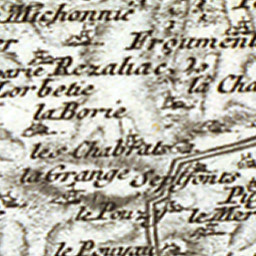 Michonnie
Froument
Rezahac
Lorbetie
la Cha
la Borie
les Chabrats
la Grange
Septfonts
le Pouz
le Mer
le Pouyau